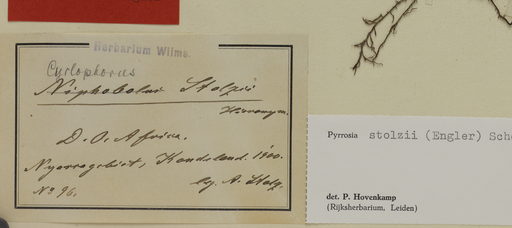 Herbarium Wilms.
Cyclophorus
Niphobolus Stolzii
Hieronym.
D. O. Africa.
Nyassagebiet, Kondeland. 1900.
leg. A. Stolz.
No 96.
Pyrrosia stolzii (Engler) Sche
det. P. Hovenkamp
(Rijksherbarium, Leiden)